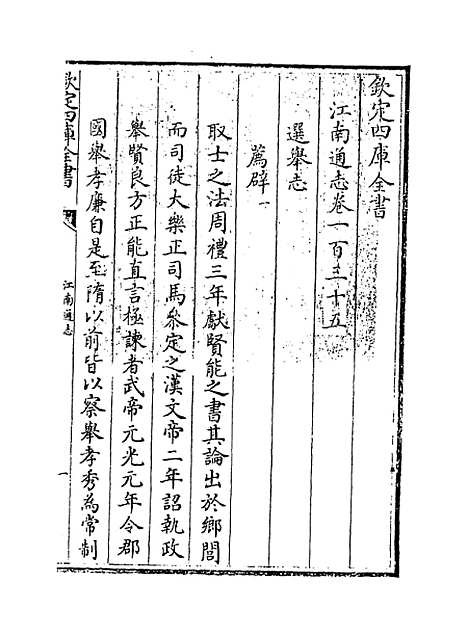 欽定四庫全書
江南通志卷一百三十五
選舉志
薦辟一
取士之法周禮三年獻賢能之書其論出於鄉閭
而司徒大樂正司馬叅定之漢文帝二年詔執政
舉賢良方正能直言極諫者武帝元光元年令郡
國舉孝廉自是至隋以前皆以察舉孝秀為常制
欽定四庫全書
江南通志
一